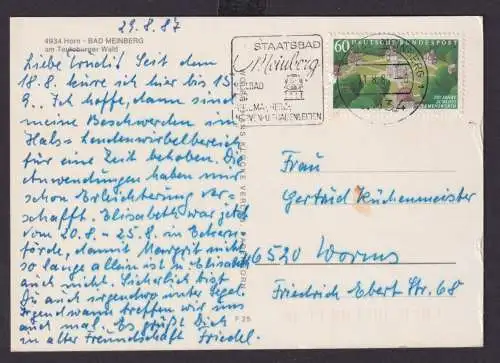 29.8.87
4934 Horn - BAD MEINBERG
am Teutoburger Wald
Liebe Trudi! Seit dem
18.8. kure ich hier bis 15.
9. Ich hoffe, dann sind
meine Beschwerden im
Hals u. Lendenwirbelbereich
für eine Zeit behoben. Die
Anwendungen haben mir
schon Erleichterung ver-
schafft. Elisabeth war jetzt
vom 20.8. - 25.8. in Eckern-
förde, damit Margrit nicht
so lange allein ist u. Elisabeth
auch nicht. Sicherlich bist
Du auch irgendwo unter Segel.
Irgendwann treffen wir uns
auch mal. Es grüßt Dich
in alter Freundschaft Friedel.
STAATSBAD
Meinberg
BAD
60 DEUTSCHE BUNDESPOST
Frau
Gertrud Küchenmeister
6520 Worms
Friedrich Ebert Str. 68
F 25